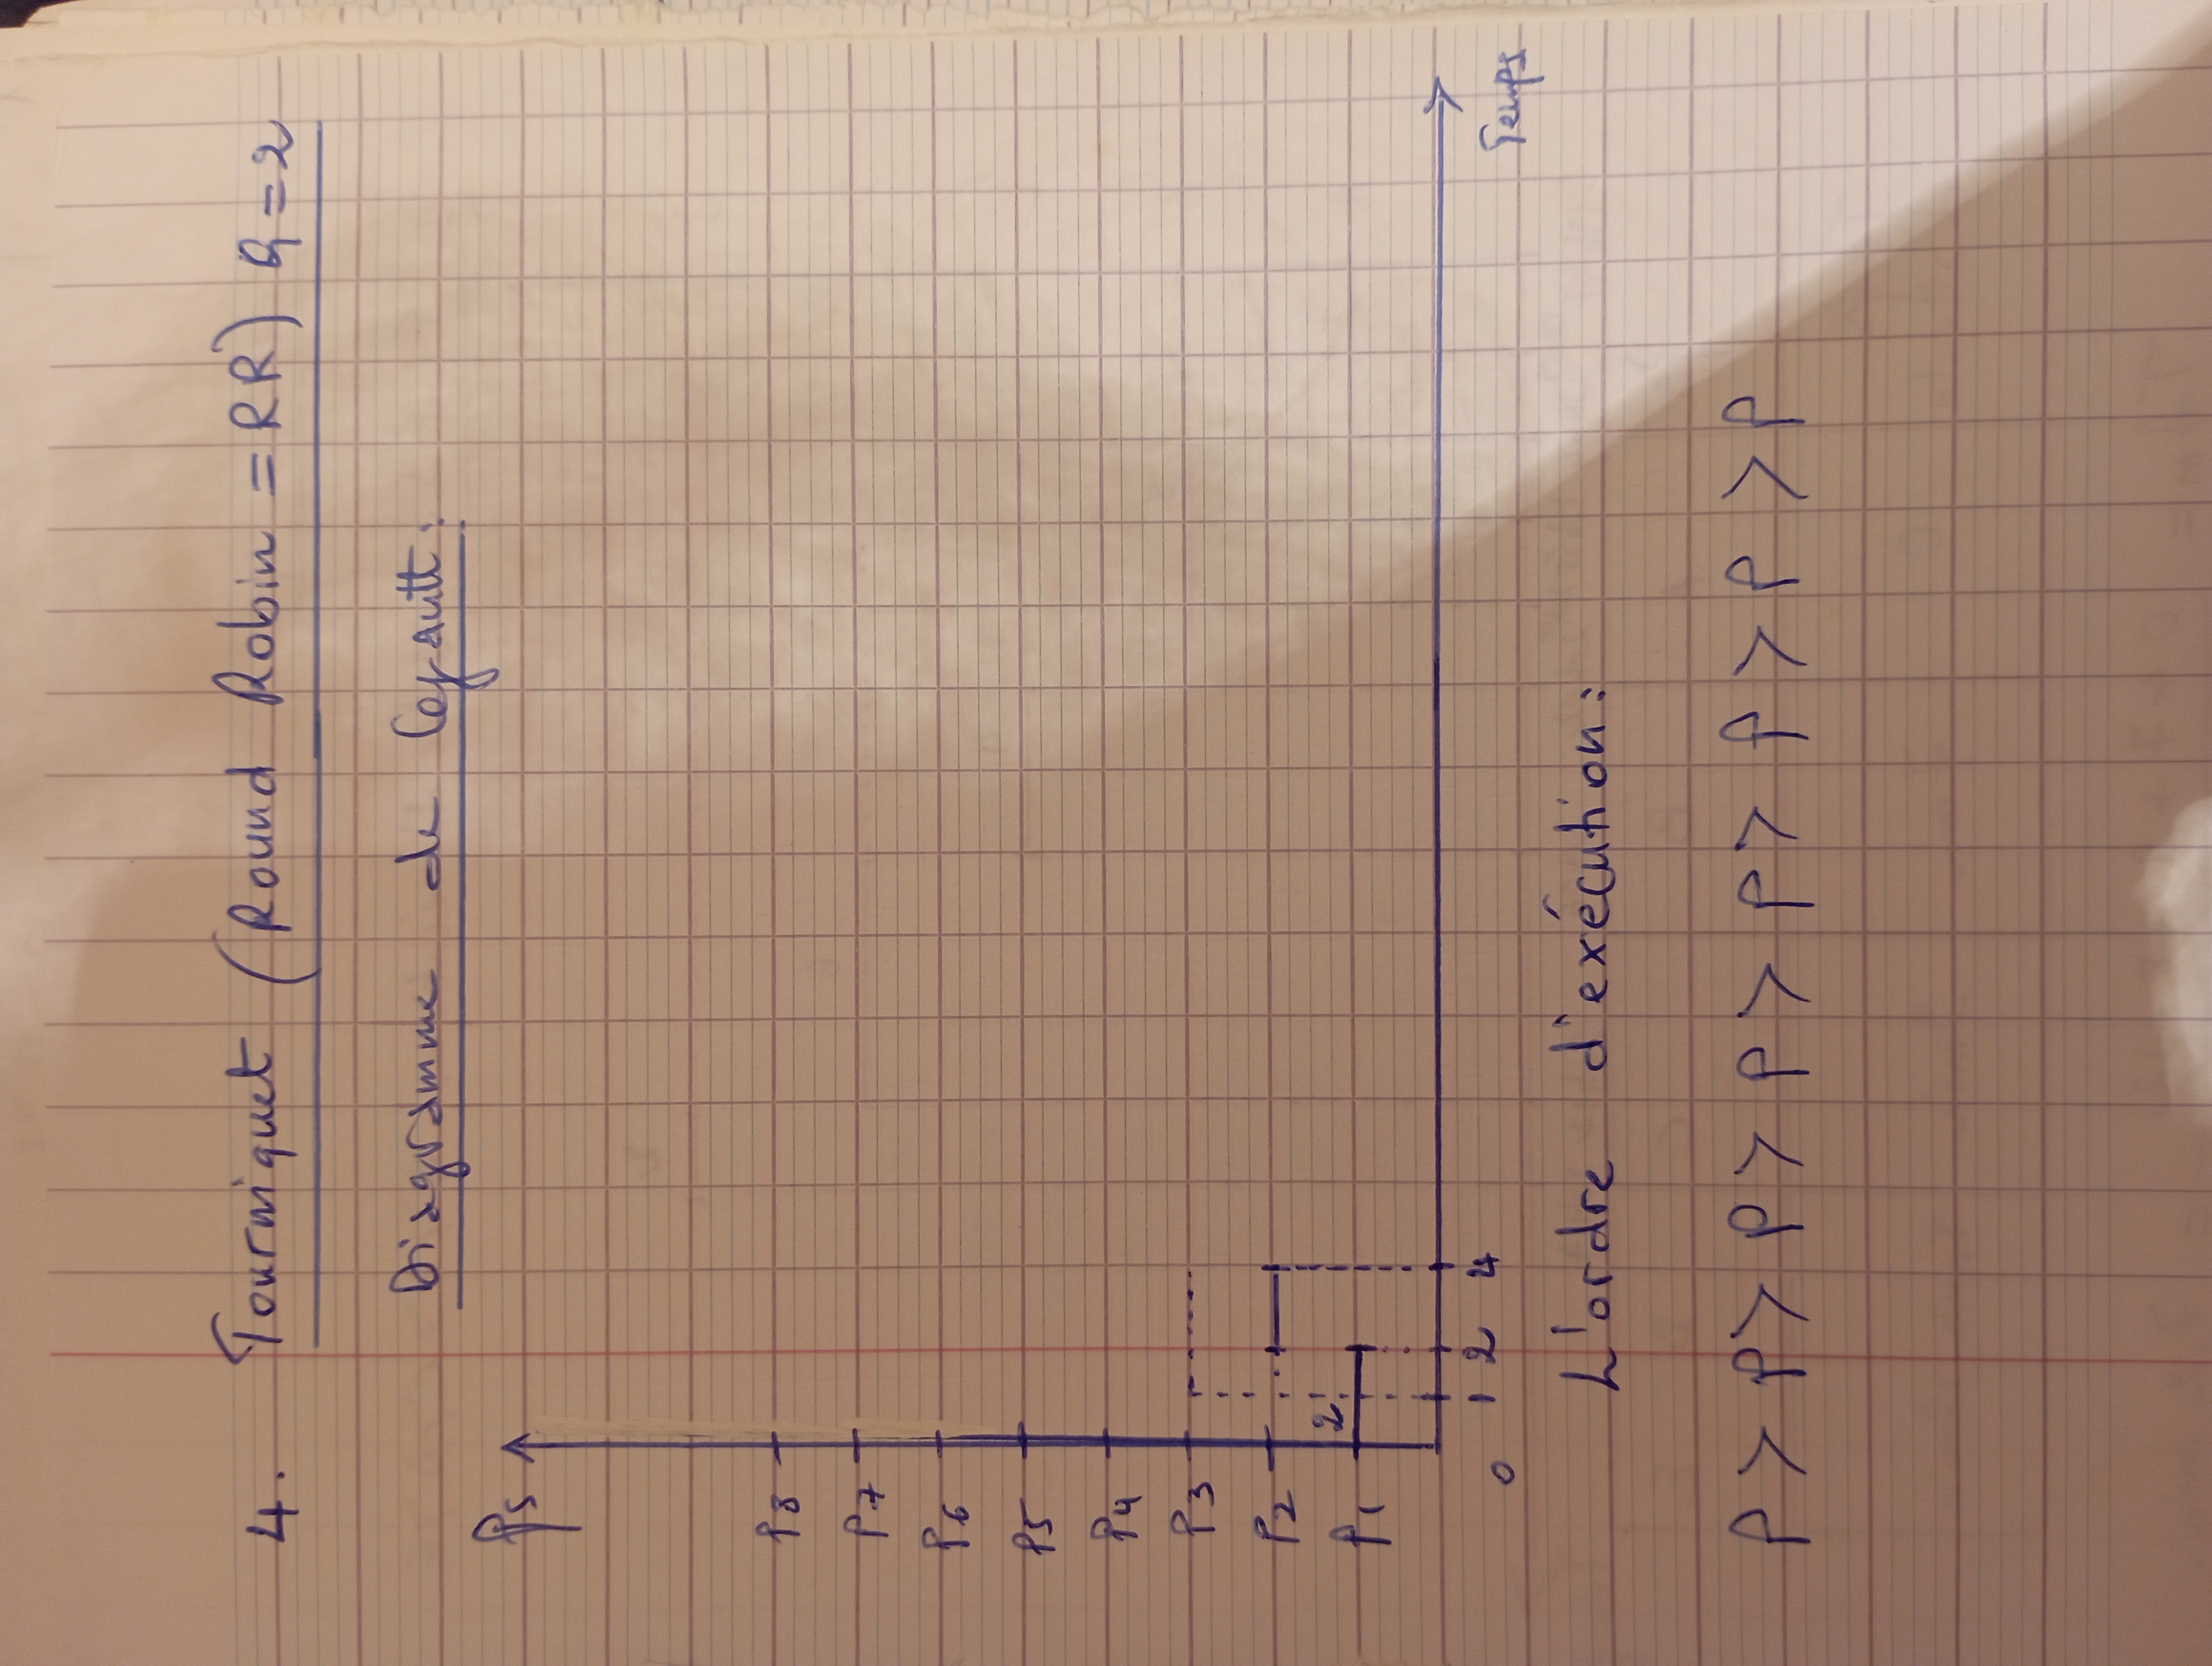 4. Tourniquet (Round Robin = RR) Q = 2
Diagramme de Gantt :
Ps
P8
P7
P6
P5
P4
P3
P2
2
P1
0 1 2 4
Temps
L'ordre d'exécution :
P > P > P > P > P > P > P > P